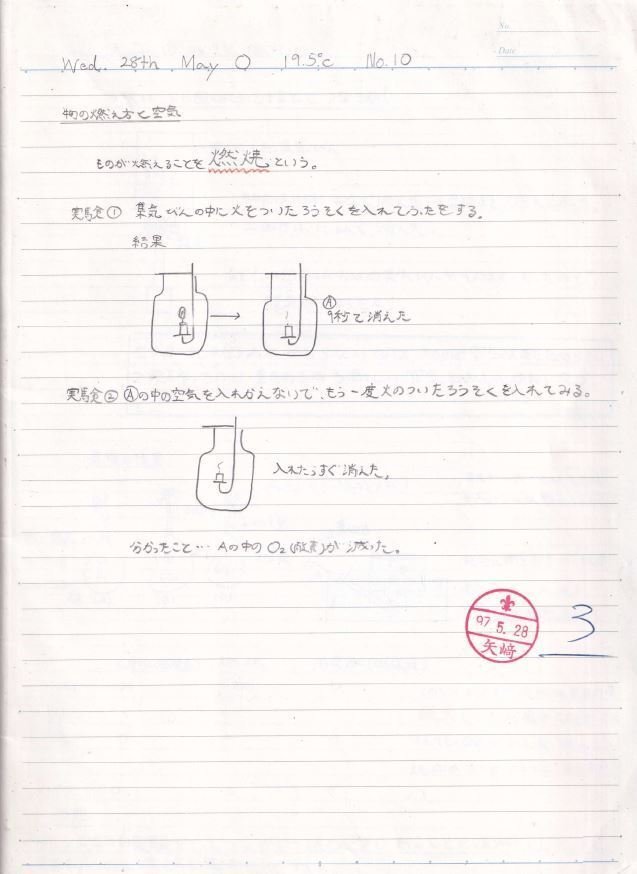 No.
Date
Wed. 28th May ○ 19.5℃ No.10
物の燃え方と空気
ものが燃えることを燃焼という。
実験① 集気びんの中に火をついたろうそくを入れてふたをする。
結果
Ⓐ
9秒で消えた
実験② Ⓐの中の空気を入れかえないで、もう一度火のついたろうそくを入れてみる。
入れたらすぐ消えた。
分かったこと… Aの中のO2(酸素)が減った。
97.5.28
矢崎
3